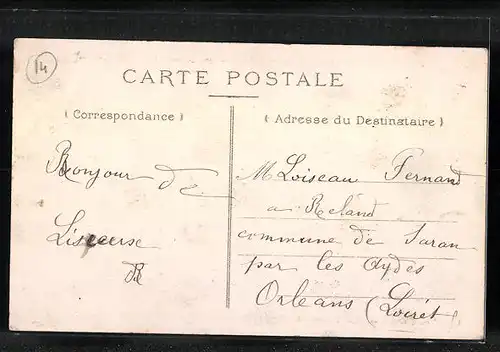 14
CARTE POSTALE
( Correspondance )
( Adresse du Destinataire )
Bonjour de
R
M Loiseau Fernand
a
commune de Saran
par les Aydes
Orleans (Loiret)